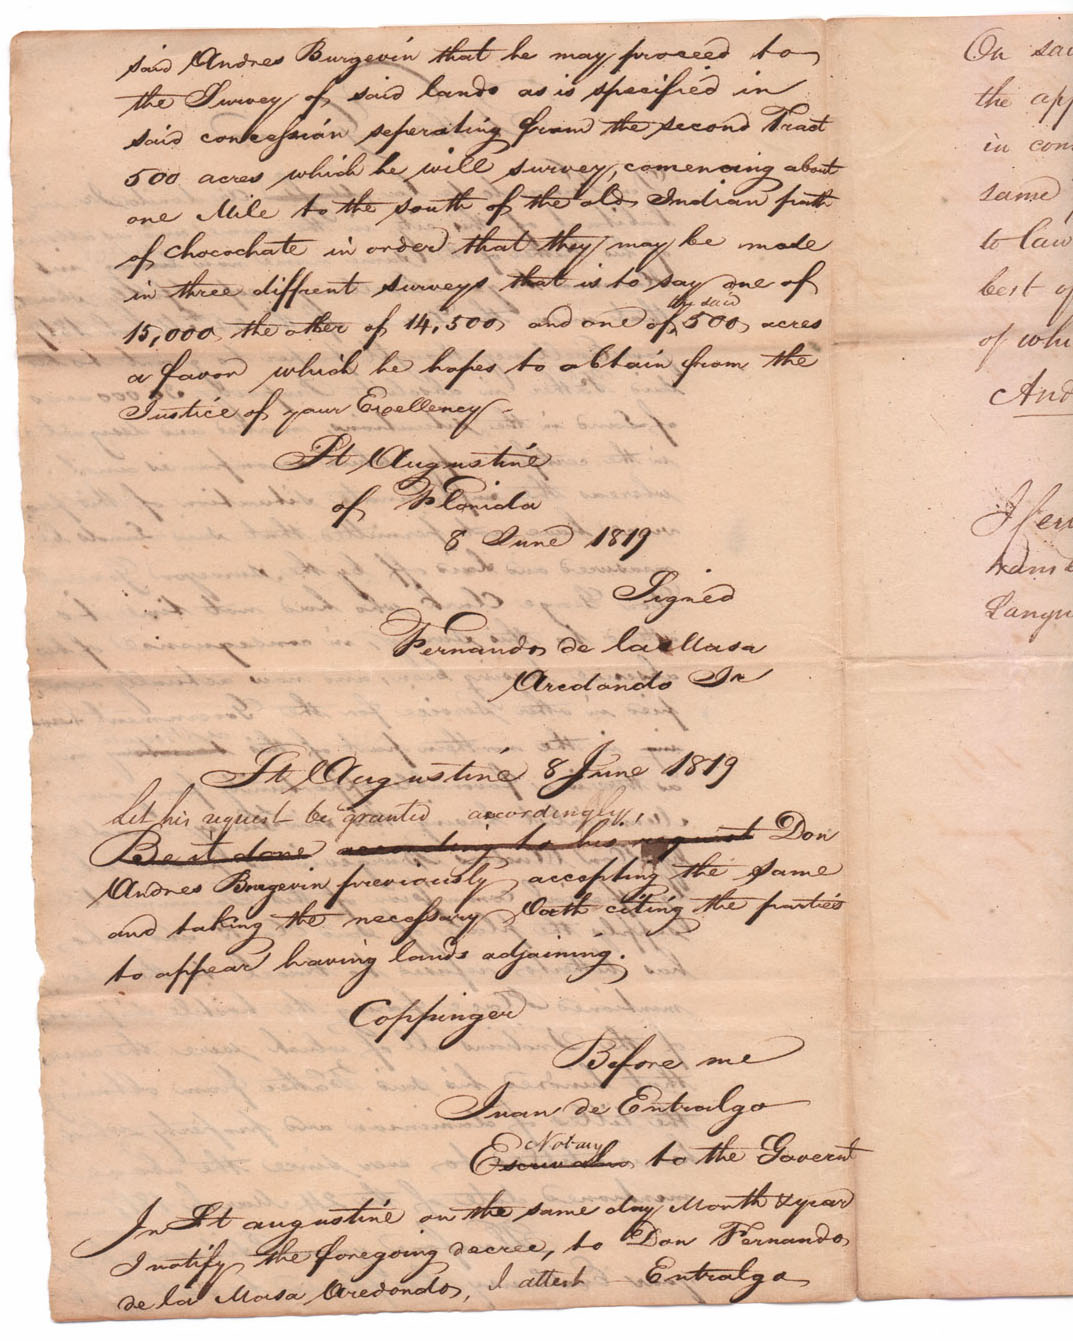 said Andres Burgevin that he may proceed to
the Survey of said lands as is specified in
said concession seperating from the second Tract
500 acres which he will survey, comencing about
one Mile to the south of the old Indian path
of Chocochate in order that they may be made
in three diffrent surveys that is to say one of
15,000, the other of 14,500, and one of the said 500 acres
a favor which he hopes to obtain from the
Justice of your Excellency.
St Augustine
of Florida
8 June 1819
Signed
Fernando de la Masa
Aredondo Jr
St Augustine 8 June 1819
Let his request be granted accordingly,
Be it done according to his request Don
Andres Burgevin previously accepting the same
and taking the necessary Oath citing the parties
to appear having lands adjoining.
Coppinger
Before me
Juan de Entralgo
Notary
to the Governt
In St augustine on the same day Month & year
I notify the foregoing decree, to Don Fernando
de la Masa Aredondo, I attest Entralgo
On
the
in
same
to law
best of
of